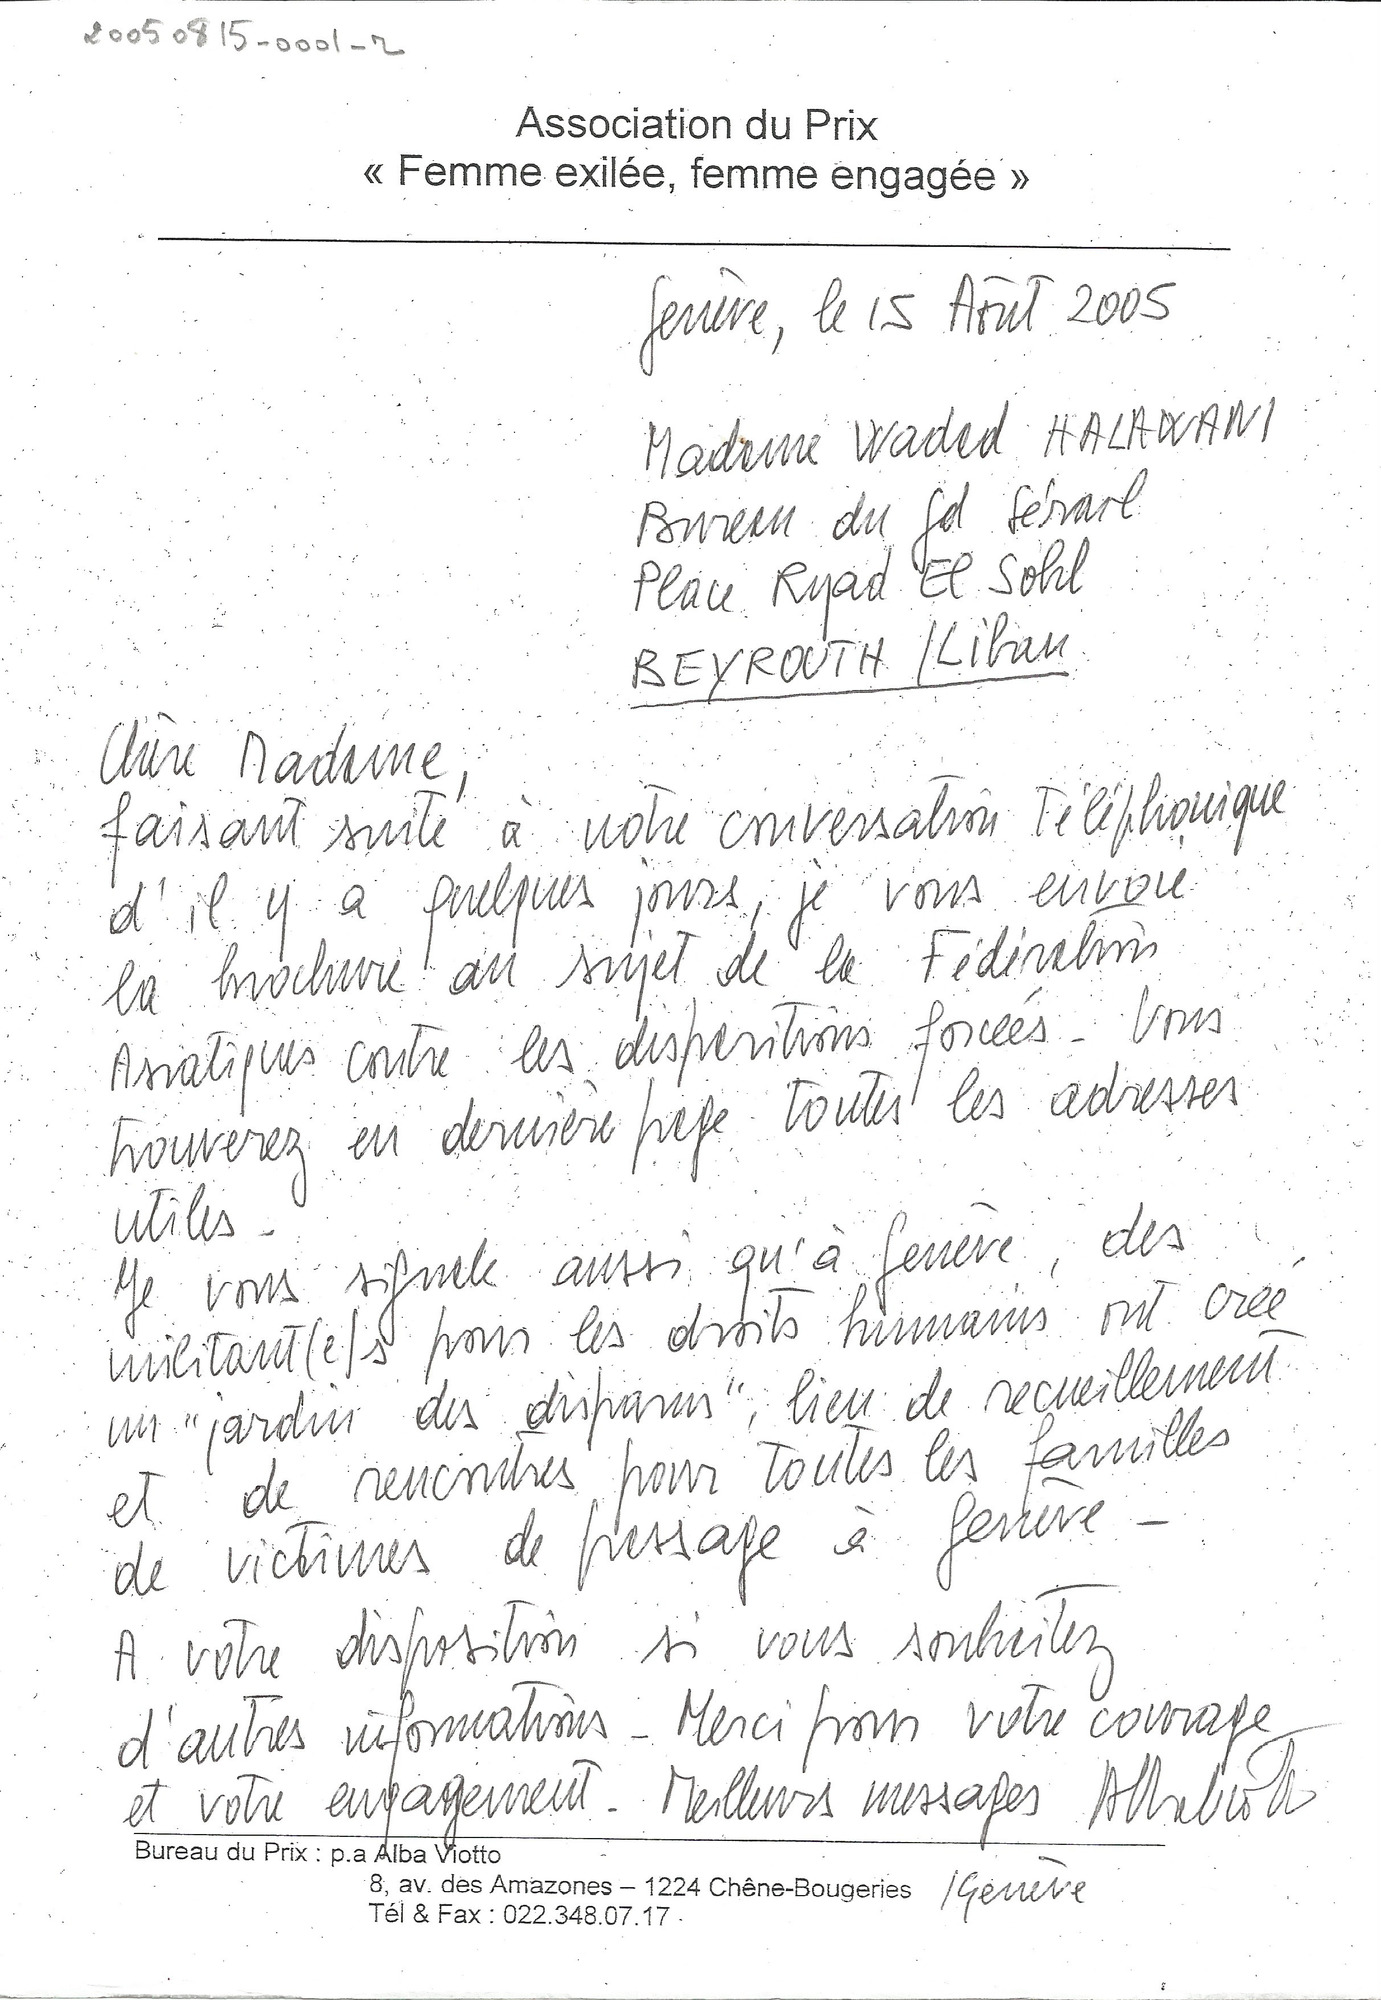 20050815-0001-r
Association du Prix
« Femme exilée, femme engagée »
Genève, le 15 Août 2005
Madame Waded HALAWANI
Bureau du Gd Sérail
Place Ryad El Sohl
BEYROUTH /Liban
Chère Madame,
faisant suite à notre conversation téléphonique
d'il y a quelques jours, je vous envoie
la brochure au sujet de la Fédération
Asiatiques contre les disparitions forcées - Vous
trouverez en dernière page toutes les adresses
utiles -
Je vous signale aussi qu'à Genève, des
militant(e)s pour les droits humains ont créé
un "jardin des disparus", lieu de recueillement
et de rencontres pour toutes les familles
de victimes de passage à Genève -
A votre disposition si vous souhaitez
d'autres informations - Merci pour votre courage
et votre engagement - Meilleurs messages Alba Viotto
Bureau du Prix : p.a Alba Viotto
8, av. des Amazones – 1224 Chêne-Bougeries /Genève
Tél & Fax : 022.348.07.17